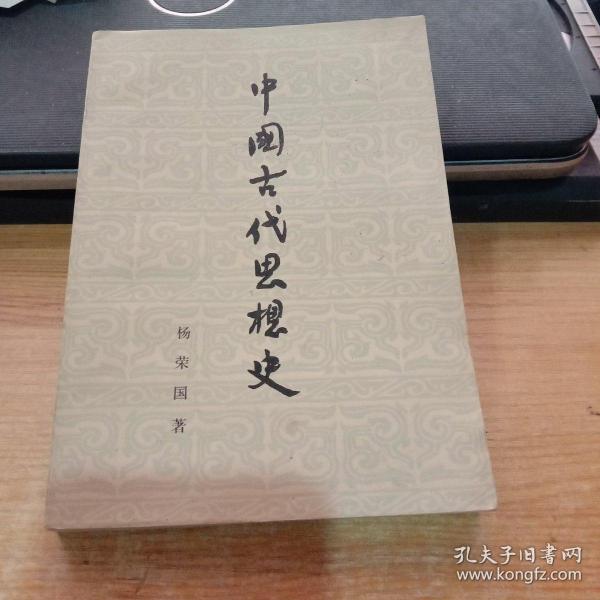 中國古代思想史
杨荣国著
孔夫子旧書网
www.kongfz.com